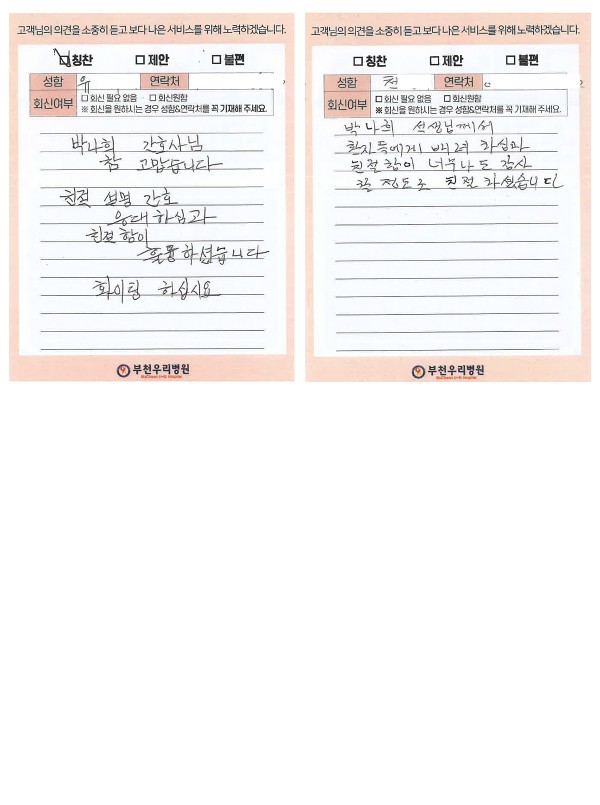 고객님의 의견을 소중히 듣고 보다 나은 서비스를 위해 노력하겠습니다.
☑칭찬 □제안 □불편
성함 유 연락처
회신여부 □회신 필요 없음 □회신원함
※ 회신을 원하시는 경우 성함&연락처를 꼭 기재해 주세요.
박나희 간호사님
참 고맙습니다
친절 설명 간호
응대하심과
친절함이
훌륭하셨습니다
화이팅 하십시요
부천우리병원
고객님의 의견을 소중히 듣고 보다 나은 서비스를 위해 노력하겠습니다.
□칭찬 □제안 □불편
성함 전 연락처
회신여부 □회신 필요 없음 □회신원함
※ 회신을 원하시는 경우 성함&연락처를 꼭 기재해 주세요.
박나희 선생님께서
환자들에게 배려 하심과
친절함이 너무나도 감사
할 정도로 친절 하셨습니다
부천우리병원